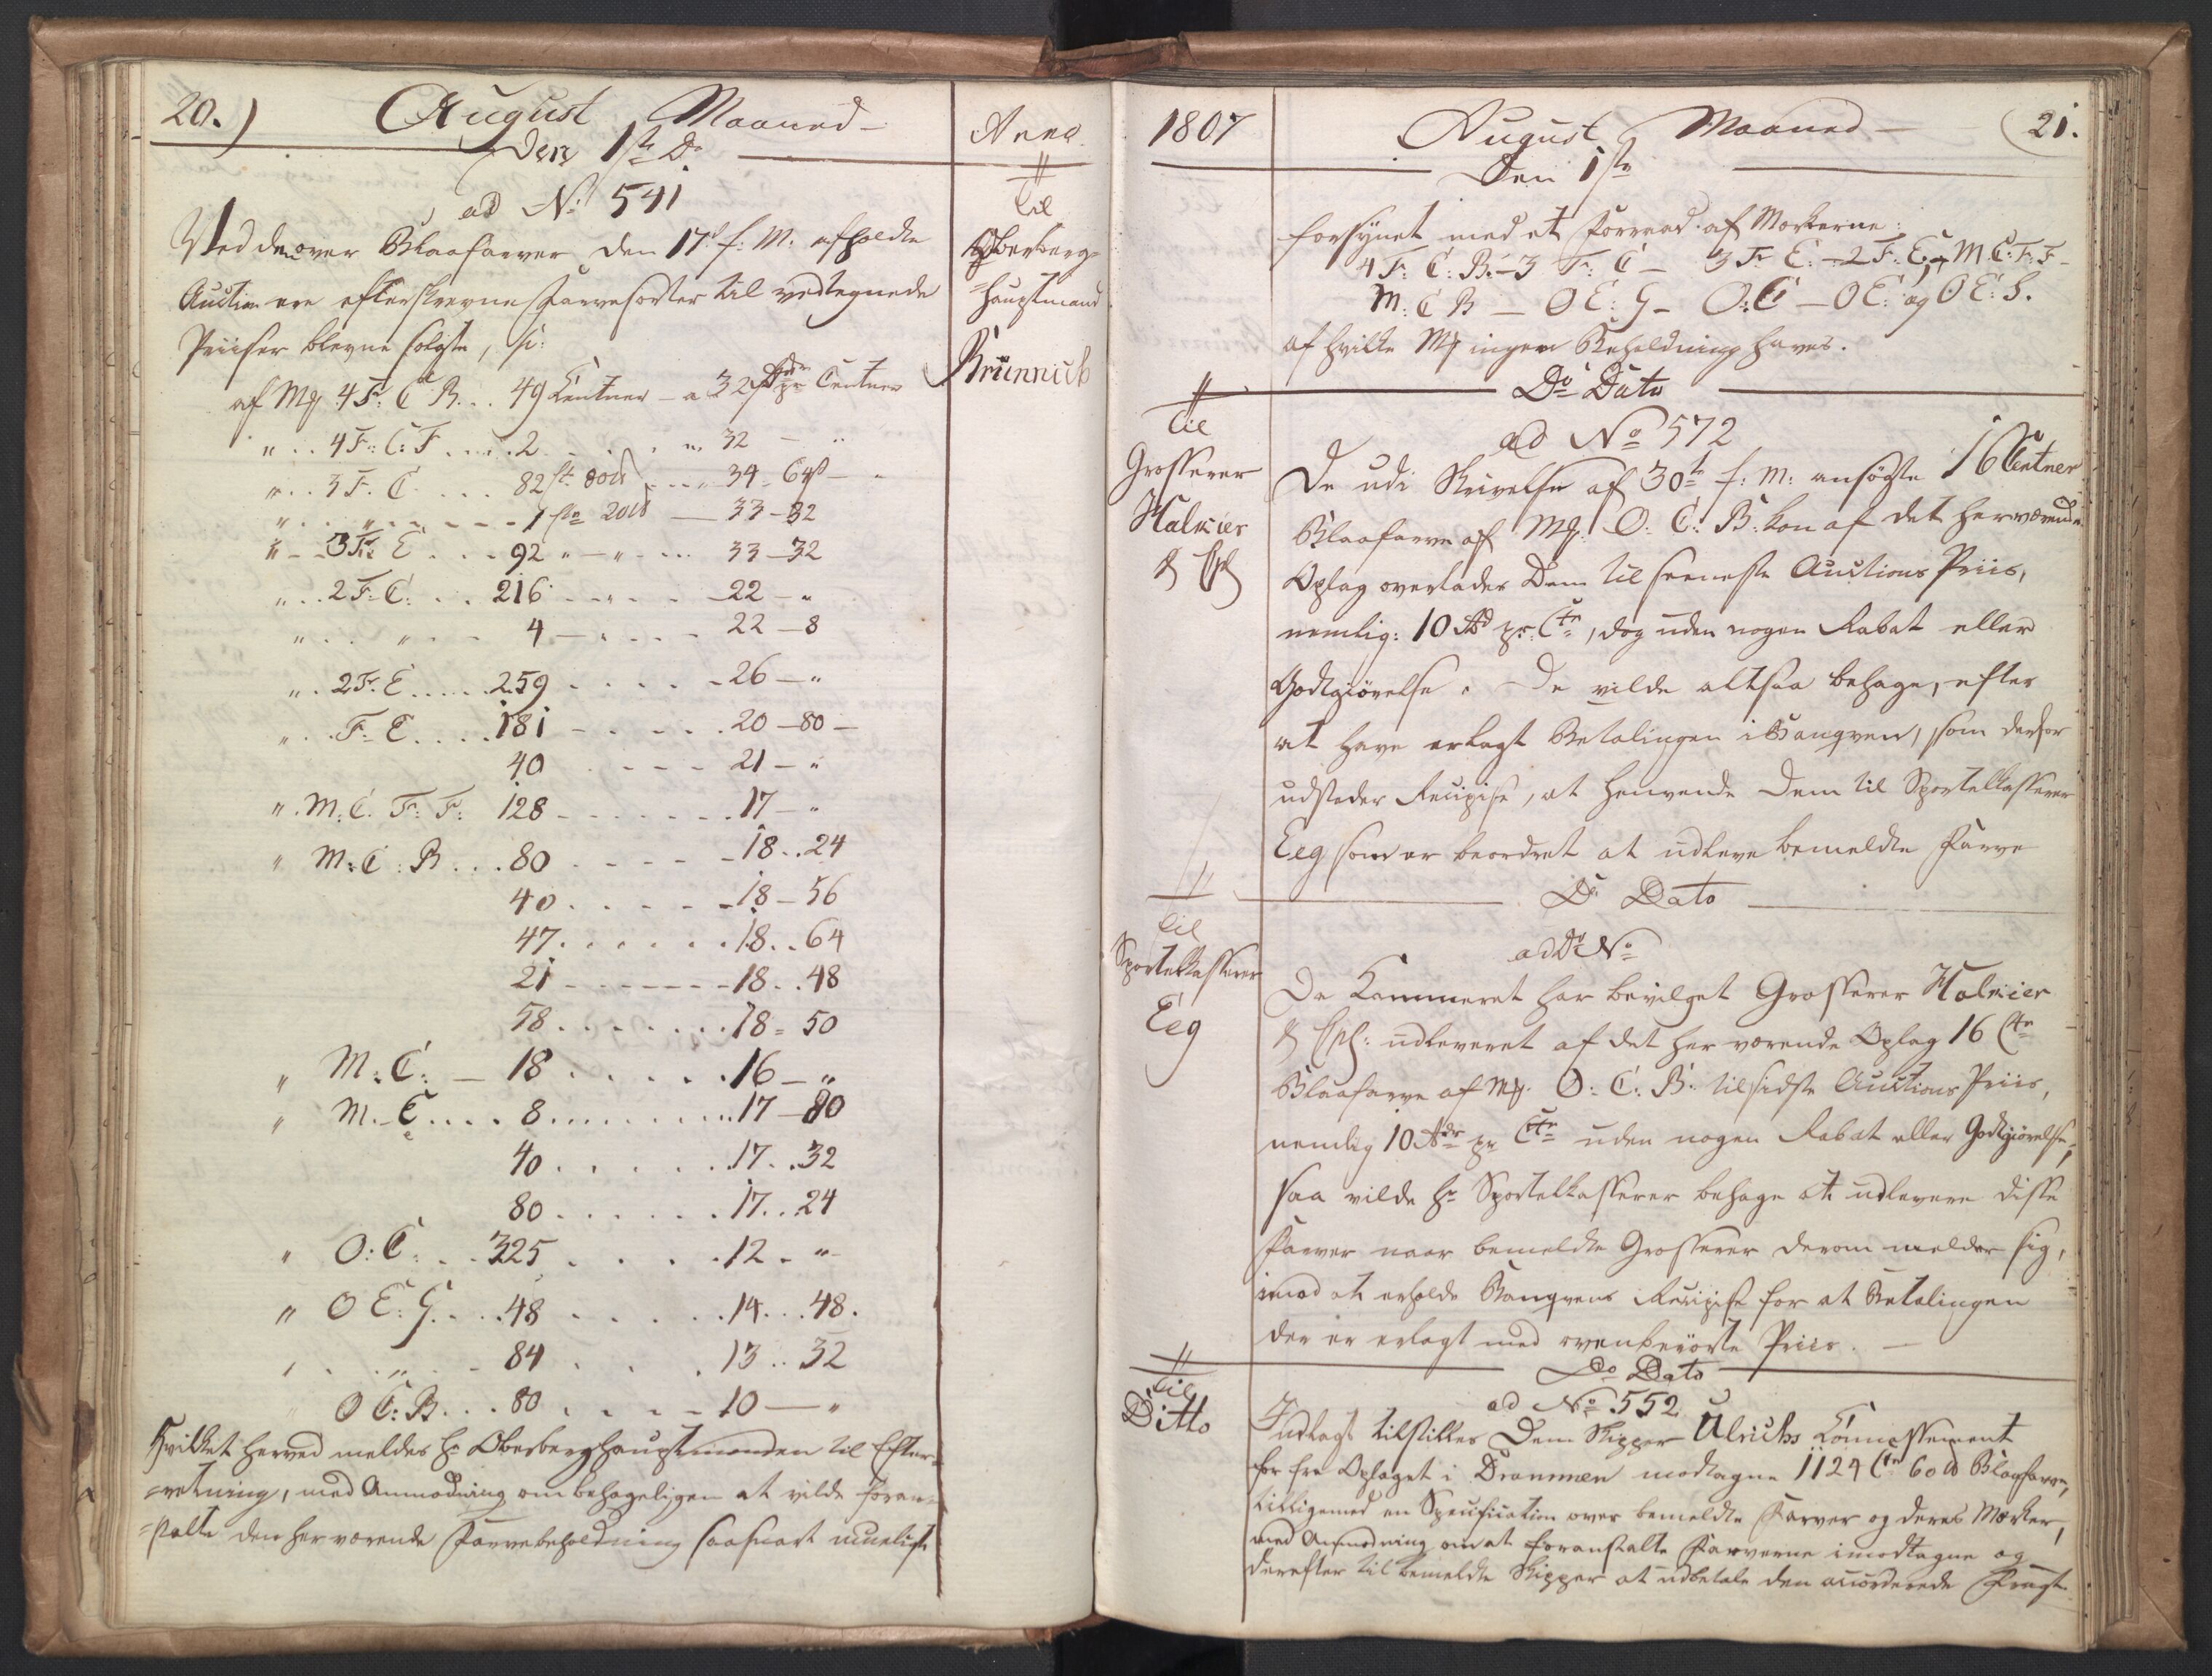 20.)
August Maaned
Den 1ste Do
ad No 541
Ved den over Blaafarver den 17de f: M. afholdte
Auction ere efterskrevne Farvesorter til vedtegnede
Priiser blevne solgte, s:
af Mg 4 F: C B. . . 49 Centner - a 32 Rdr pr Centner
" . . 4 F: C: F . . . . . 2 . . . . . " 32 - "
" . . 3 F. C. . . . 82 st: 80 lb . . . 34 - 64 s - "
" . . " . . - - - - 1 sto 20 lb — 33 - 32
" - - 3 F: E . . . . 92 " - " - . . . 33 - 32
" . . 2 F: C: . . . 216 - . . . - 22 - "
" . . " . . - 4 - . . . . 22 - 8
" . 2 F. E . . . . . 259 . . . . . - 26 - "
" . . F. E. . . . 181 - . . . . . 20 - 80 -
40 . - - - - 21 - "
" . M: C. F: F: 128 - - - - - - . 17 - "
" M: C: B . . . 80 . - - - - 18 . . 24
40 . . . . . - 18 - 56
47 . . . . . . . 18 . . 64
21 - - - - - - - 18 . . 48
58 . . . . . . . 18 = 50
" M: C: - 18 . . . . . . 16 - "
" M. E . . . . 8 . . . . . . . . . 17 - 80
40 . . . . . . 17 . . 32
80 . . . . . . . 17 . . 24
" O: C: . . 325 . . . . . 12 . "
" O E: G. . . . 48 . . . . . . 14 . . . 48.
" . . " . . - 84 . . . . 13 . . 32
" O C: B. . . 80 . . . - - 10 — "
Hvilket herved meldes Hr Oberberghauptmanden til Efter=
=retning, med Anmodning om behageligen at vilde foran=
=stalte den her værende Farvebeholdning saasnart mueligt
Anno
Til
Oberberg=
=hauptmand
Brünnich
1807
August Maaned
21.
Den 1ste
forsynet med et Forraad af Mærkerne:
4 F: C: B. - 3 F: C - 3 F: E: - 2 F: E: - M: C: F: F -
M: C B — O E: G - O: C — O E: og O E: S.
af hvilke Mg ingen Beholdning haves.
Do Dato
Til
Grosserer
Halmier
& Cph
ad No 572
De udi Skrivelse af 30te f: M: ansøgte 16 Centner
Blaafarve af Mg. O: C: B: kan af det herværende
Oplag overlades Dem til seeneste Auctions Priis,
nemlig: 10 Rd pr: Ctn, dog uden nogen Rabat eller
Godtgiørelse. De vilde altsaa behage, efter
at have erlagt Betalingen i Banqven, som derfor
udsteder Recipisse, at henvende Dem til Sportelkasserer
Eeg som er beordret at udlevere bemeldte Farve
Do Dato
Til
Sportelkasserer
Eeg
ad Do No
Da Kammeret har bevilget Grosserer Halmier
& Cph: udleveret af det her værende Oplag 16 Ctn
Blaafarve af Mg. O: C: B: til sidste Auctions Priis,
nemlig 10 Rdr pr Ctn uden nogen Rabat eller Godtgiørelse;
saa vilde Hr Sportelkasserer behage at udlevere disse
Farver naar bemeldte Grosserer derom melder sig,
imod at erholde Banqvens Recipisse for at Betalingen
der er erlagt med ovenberørte Priis. —
Do Dato
Til
Ditto
ad No 552
Indlagt tilstilles Dem Skipper Ulrichs Connossement
for fra Oplaget i Drammen modtagne 1124 Ctn 60 lb Blaafarve,
tilligemed en Specification over bemeldte Farver og deres Mærker,
med Anmodning om at foranstalte Farverne imodtagne og
derefter til bemeldte Skipper at udbetale den accorderede Fragt